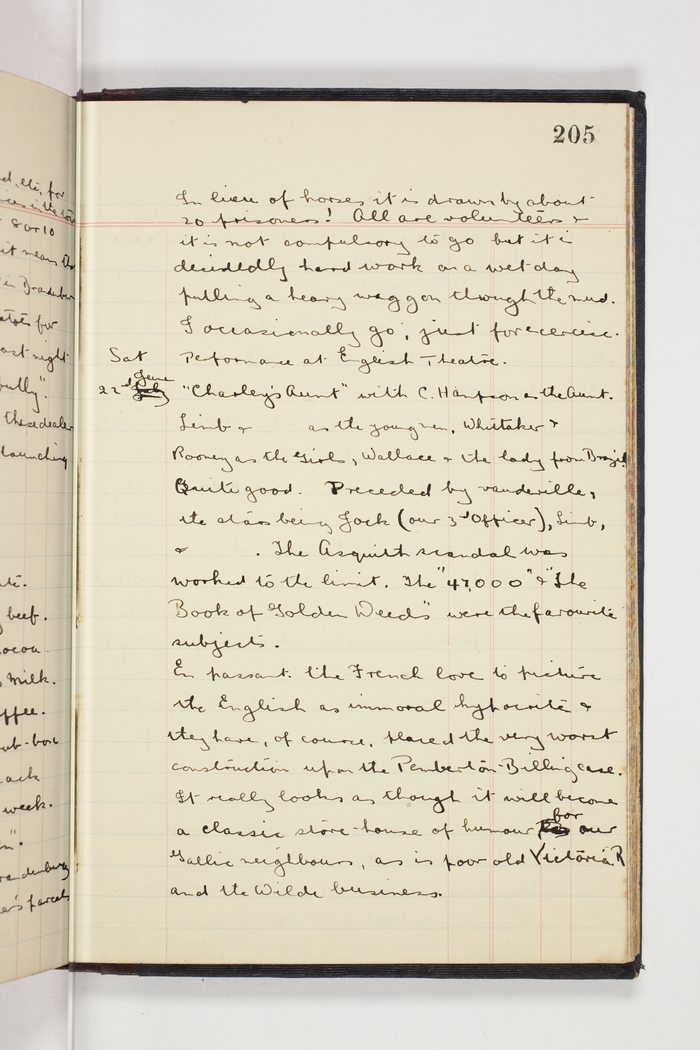 205
In lieu of horses it is drawn by about
20 prisoners! All are volunteers &
it is not compulsory to go but it is
decidedly hard work on a wet day
pulling a heavy waggon through the mud.
I occasionally go, just for exercise.
Sat Performance at English Theatre.
22nd June "Charley's Aunt" with C. Hampson as the Aunt.
Limb & as the young men, Whittaker &
Rooney as the Girls, Wallace & the lady from Brazil.
Quite good. Preceded by vaudeville,
the stars being Jock (our 3rd Officer), Limb,
& . The Asquith scandal was
worked to the limit. The "47,000" & "The
Book of Golden Deeds" were the favourite
subjects.
En passant. the French love to picture
the English as immoral hypocrite &
they have, of course, placed the very worst
construction upon the Pemberton-Billing case.
It really looks as though it will become
a classic store-house of humour for our
Gallic neighbours, as is poor old Victoria R
and the Wilde business.
for
8 or 10
it means
in
for
last night
bully".
these dealer
launching
beef.
cocoa.
milk.
coffee.
week.
parcels